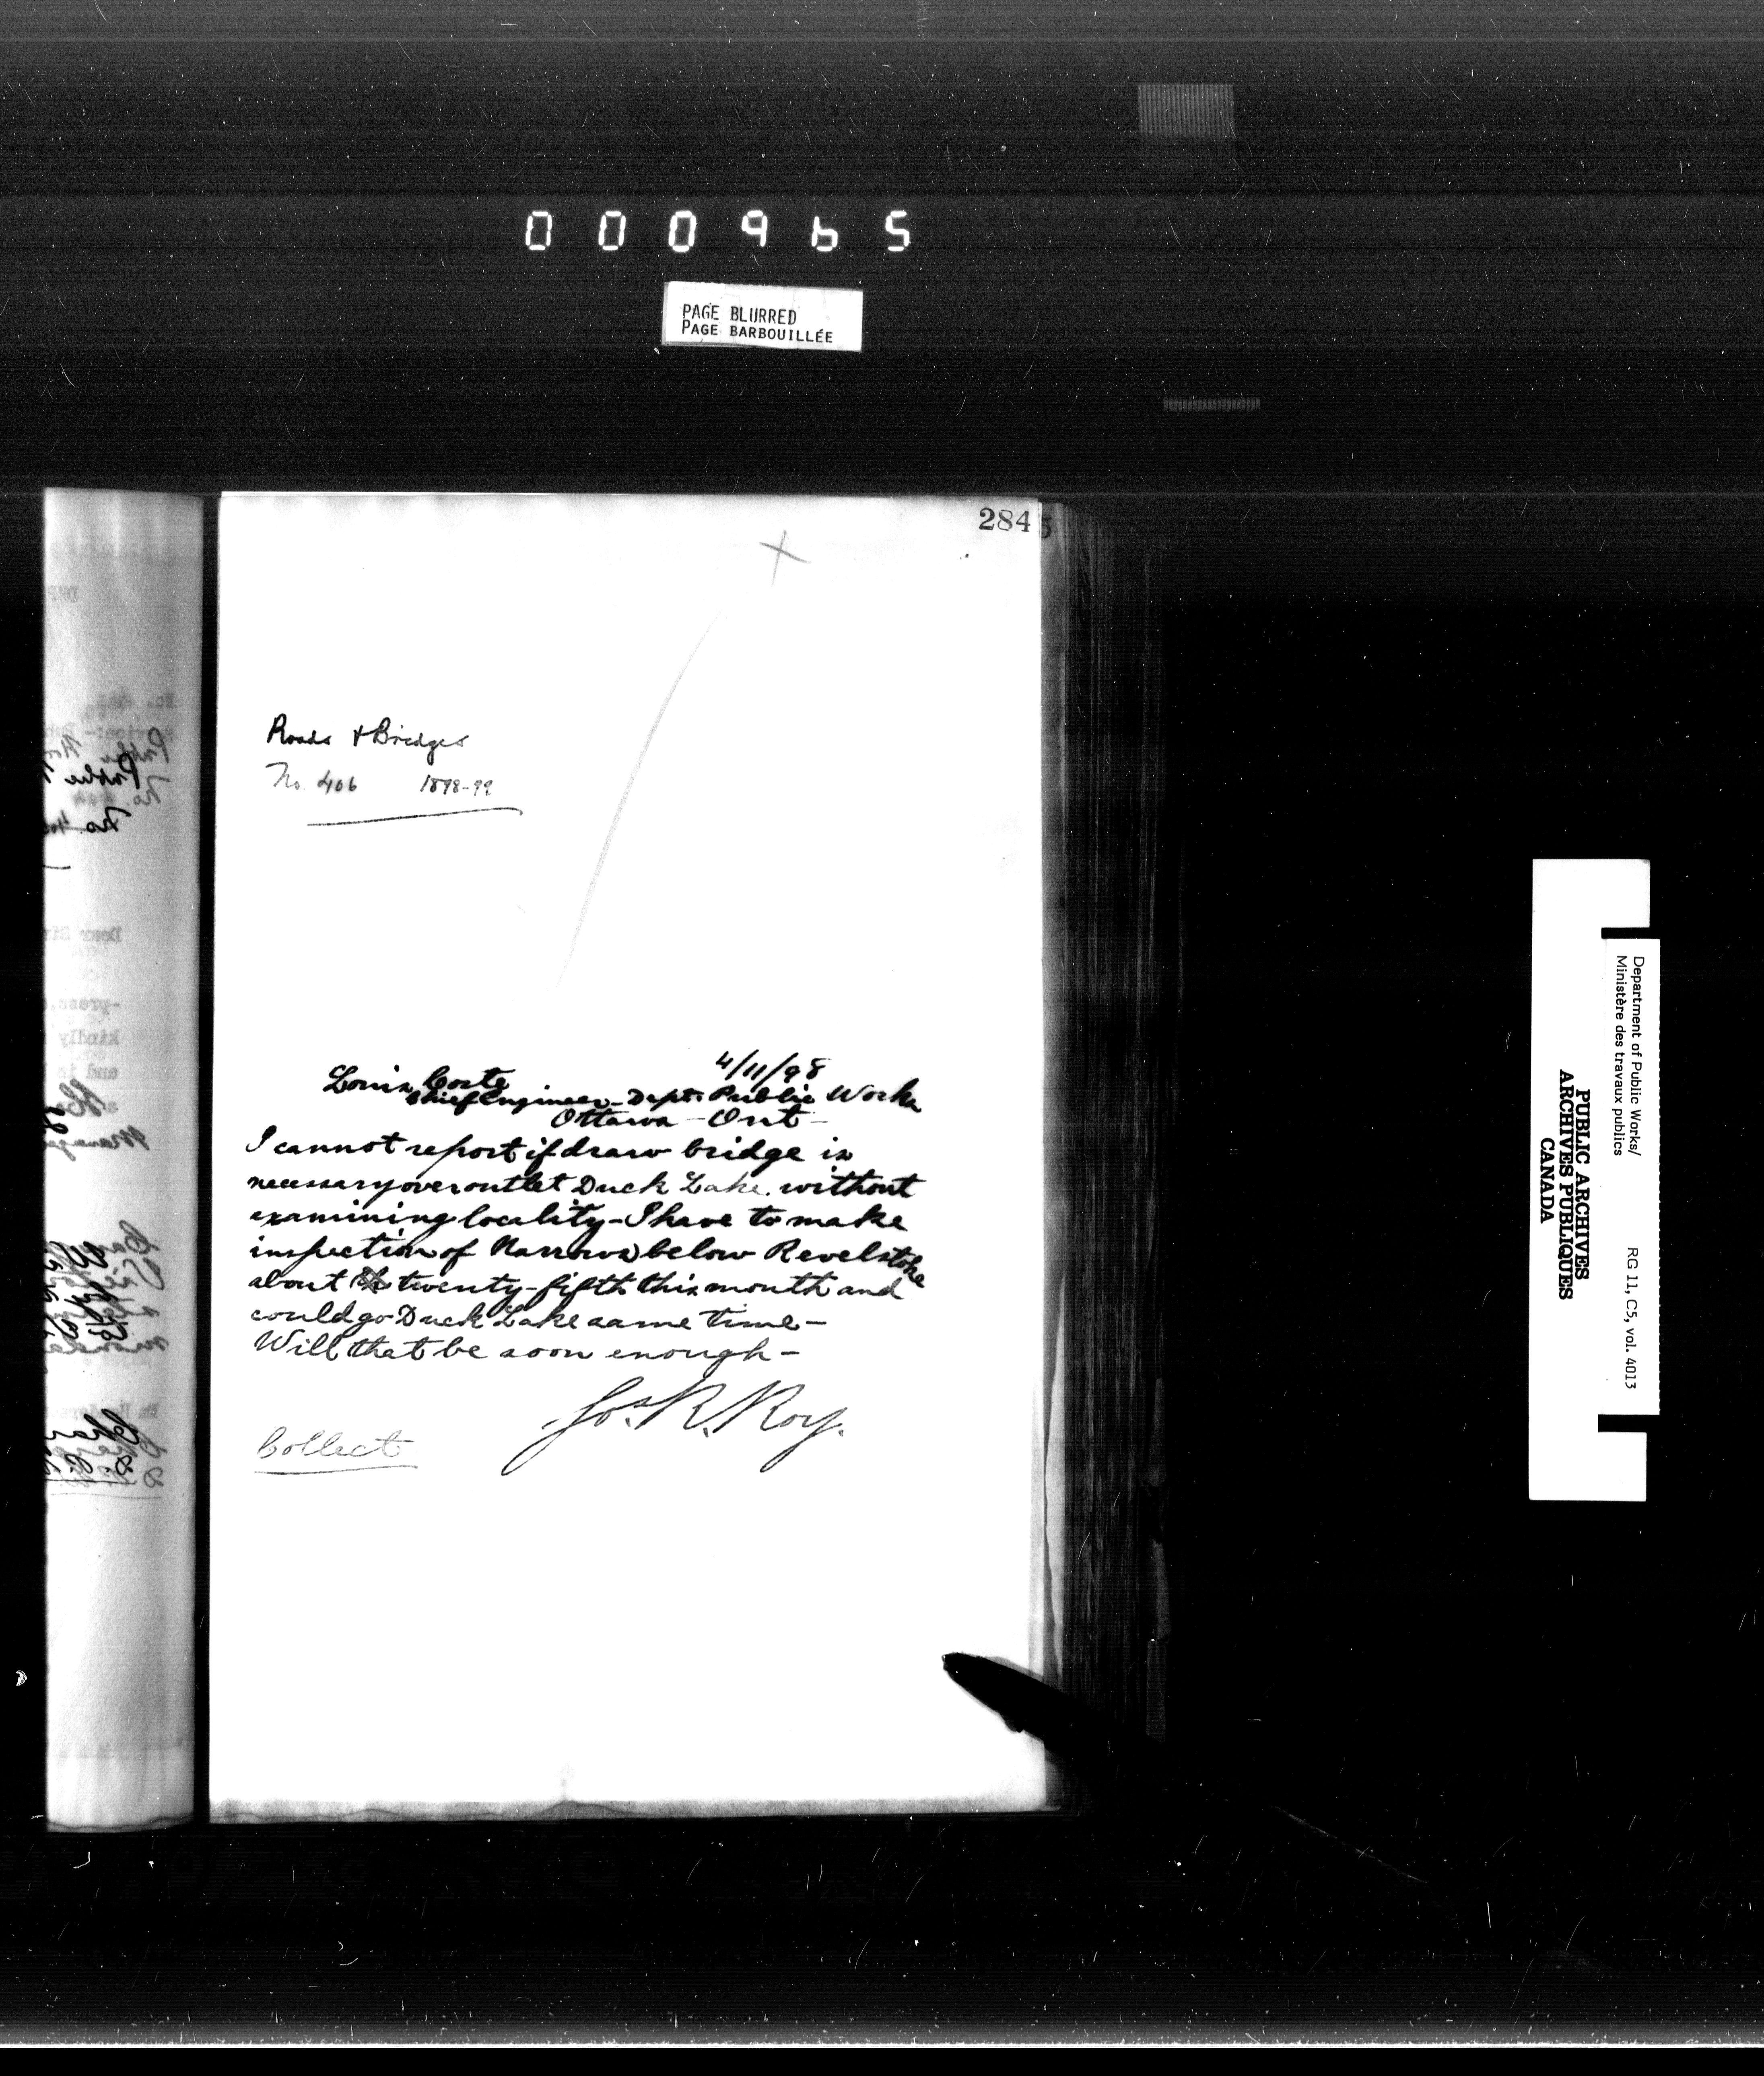 000965
PAGE BLURRED
PAGE BARBOUILLÉE
284
Roads & Bridges
No. 406 1898-99
4/11/98
Louis Coste
Chief Engineer - Dept. Public Works
Ottawa - Ont -
I cannot report if draw bridge is
necessary over outlet Duck Lake. without
examining locality - I have to make
inspection of Narrows below Revelstoke
about twenty-fifth this month and
could go Duck Lake same time -
Will that be soon enough -
Jos. R. Roy.
Collect
Department of Public Works/
Ministère des travaux publics
RG 11, C5, vol. 4013
PUBLIC ARCHIVES
ARCHIVES PUBLIQUES
CANADA